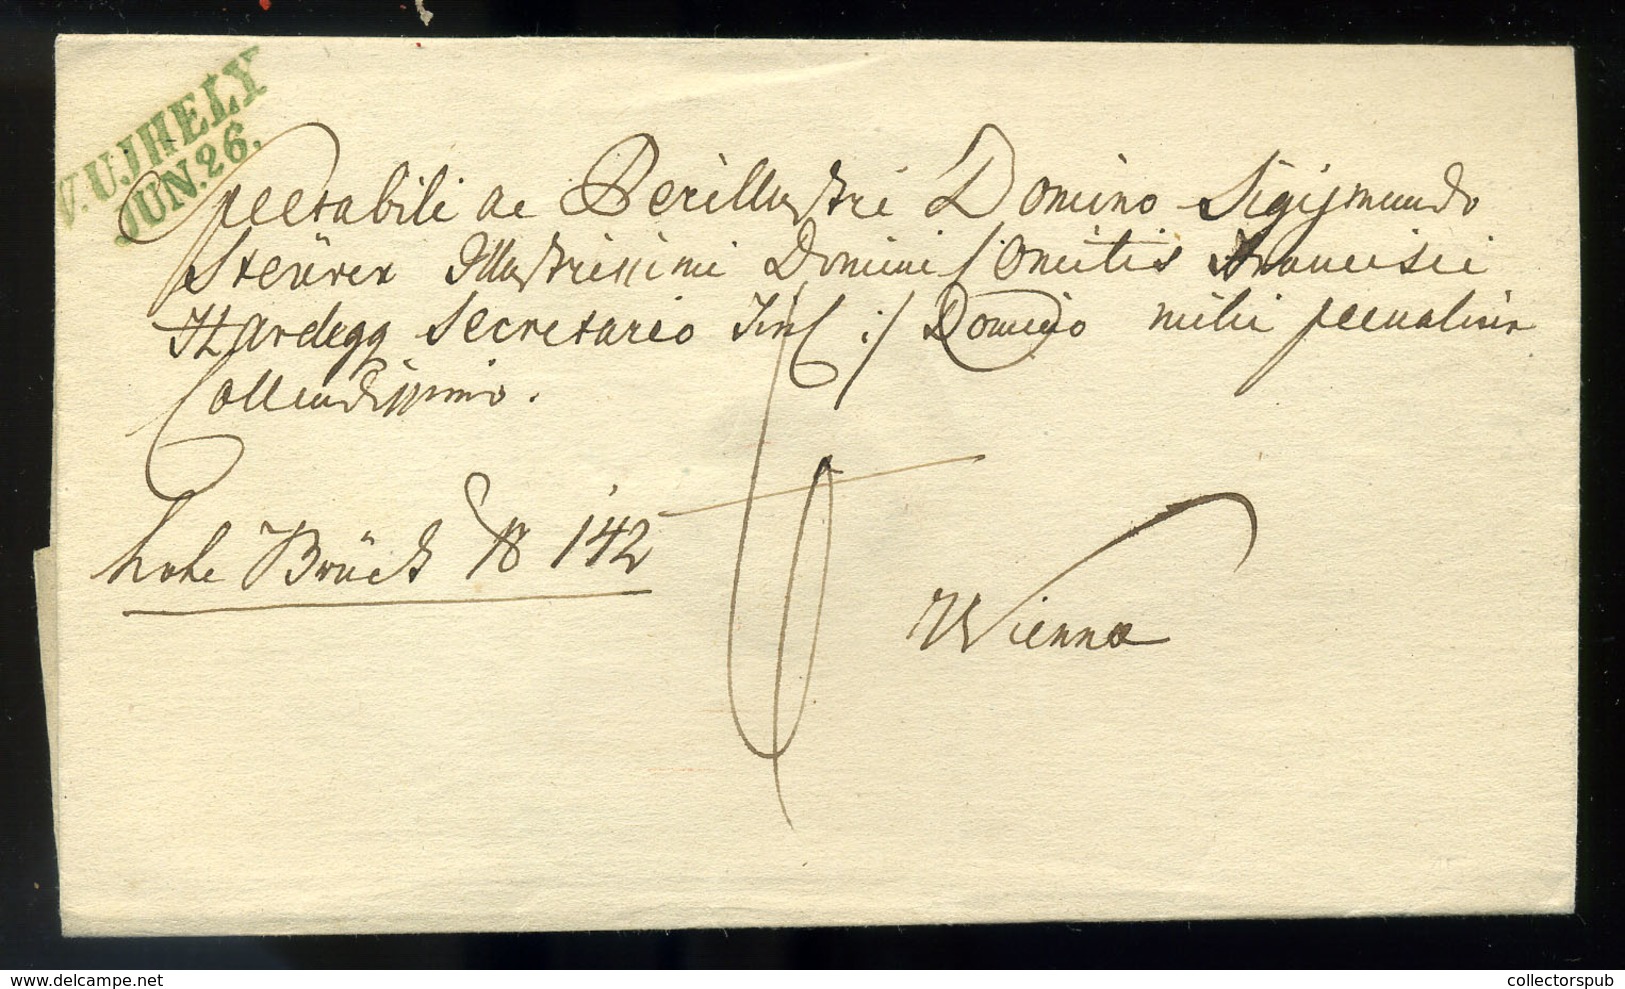 V. UJHELY
JUN. 26.
Spectabili ac Perillustri Domino Sigismundo
Illustrissimi Domini Comitis Francisci
Hardegg Secretario :/ Domino mihi peculiariter
Collendissimo.
hohe Brück N 142
Vienna
collectorspub